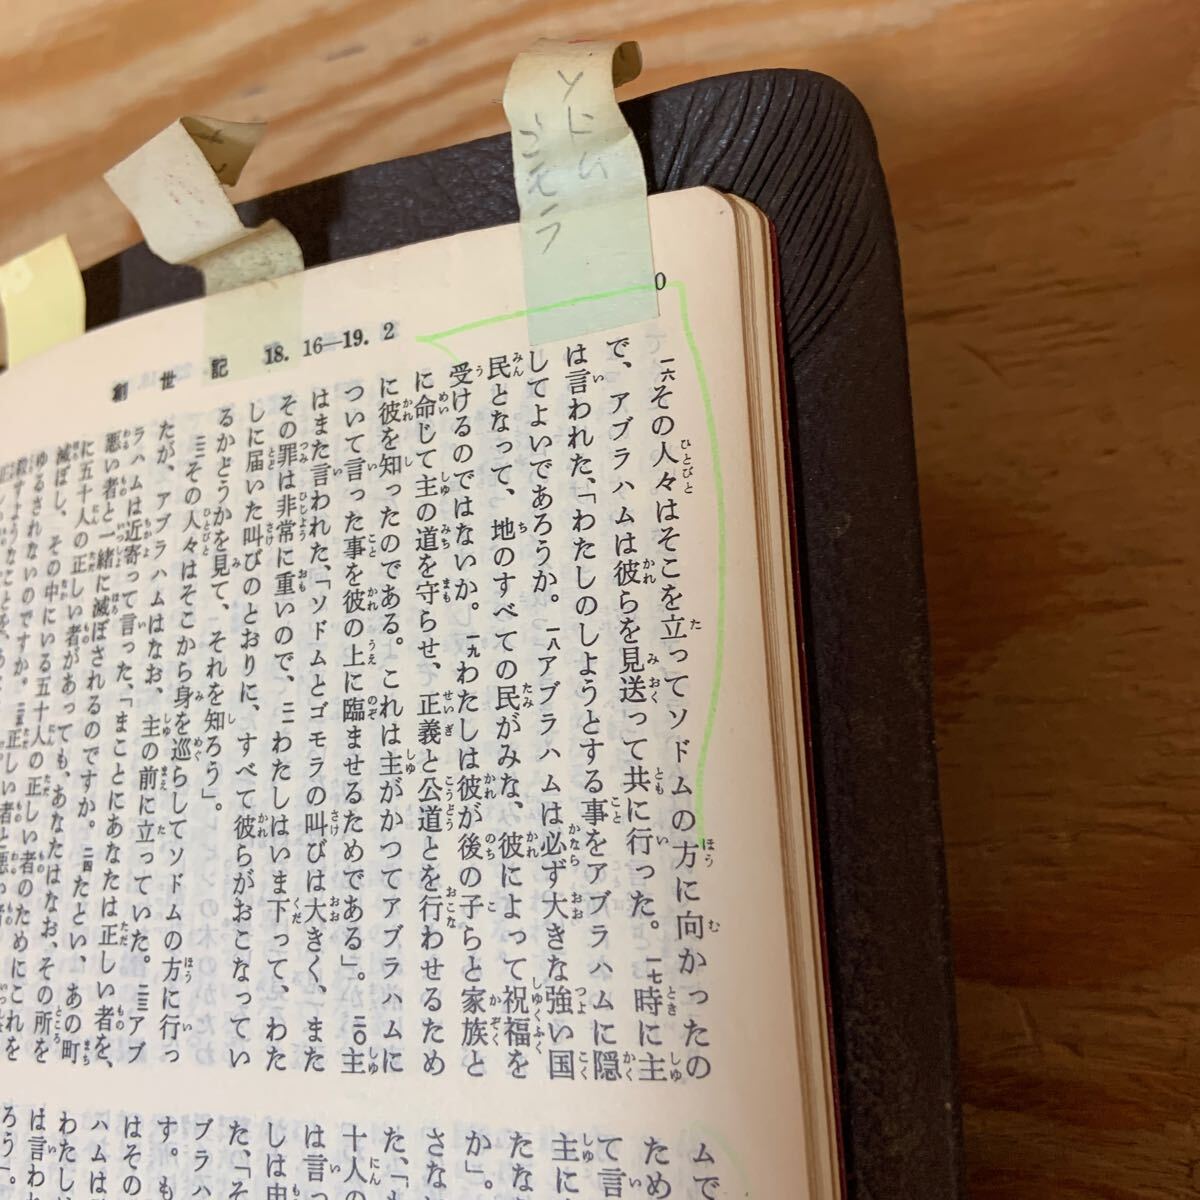 ソドム
ゴモラ
0
創世記 18. 16—19. 2
一六その人々はそこを立ってソドムの方に向かったの
で、アブラハムは彼らを見送って共に行った。一七時に主
は言われた、「わたしのしようとする事をアブラハムに隠
してよいであろうか。一八アブラハムは必ず大きな強い国
民となって、地のすべての民がみな、彼によって祝福を
受けるのではないか。一九わたしは彼が後の子らと家族と
に命じて主の道を守らせ、正義と公道とを行わせるため
に彼を知ったのである。これは主がかつてアブラハムに
ついて言った事を彼の上に臨ませるためである」。二〇主
はまた言われた、「ソドムとゴモラの叫びは大きく、また
その罪は非常に重いので、二一わたしはいま下って、わた
しに届いた叫びのとおりに、すべて彼らがおこなってい
るかどうかを見て、それを知ろう」。
二二その人々はそこから身を巡らしてソドムの方に行っ
たが、アブラハムはなお、主の前に立っていた。二三アブ
ラハムは近寄って言った、「まことにあなたは正しい者を、
悪い者と一緒に滅ぼされるのですか。二四たとい、あの町
に五十人の正しい者があっても、あなたはなお、その所を
滅ぼし、その中にいる五十人の正しい者のためにこれを
ゆるされないのですか。二五正しい者と悪い者
ムで
ため
て言
主に
たな
か」。
さな
た、「
十人の
は言っ
しは由
た、「そ
ブラハ
す。も
はその
ハムは
わたしい
は言われ
ろう」。